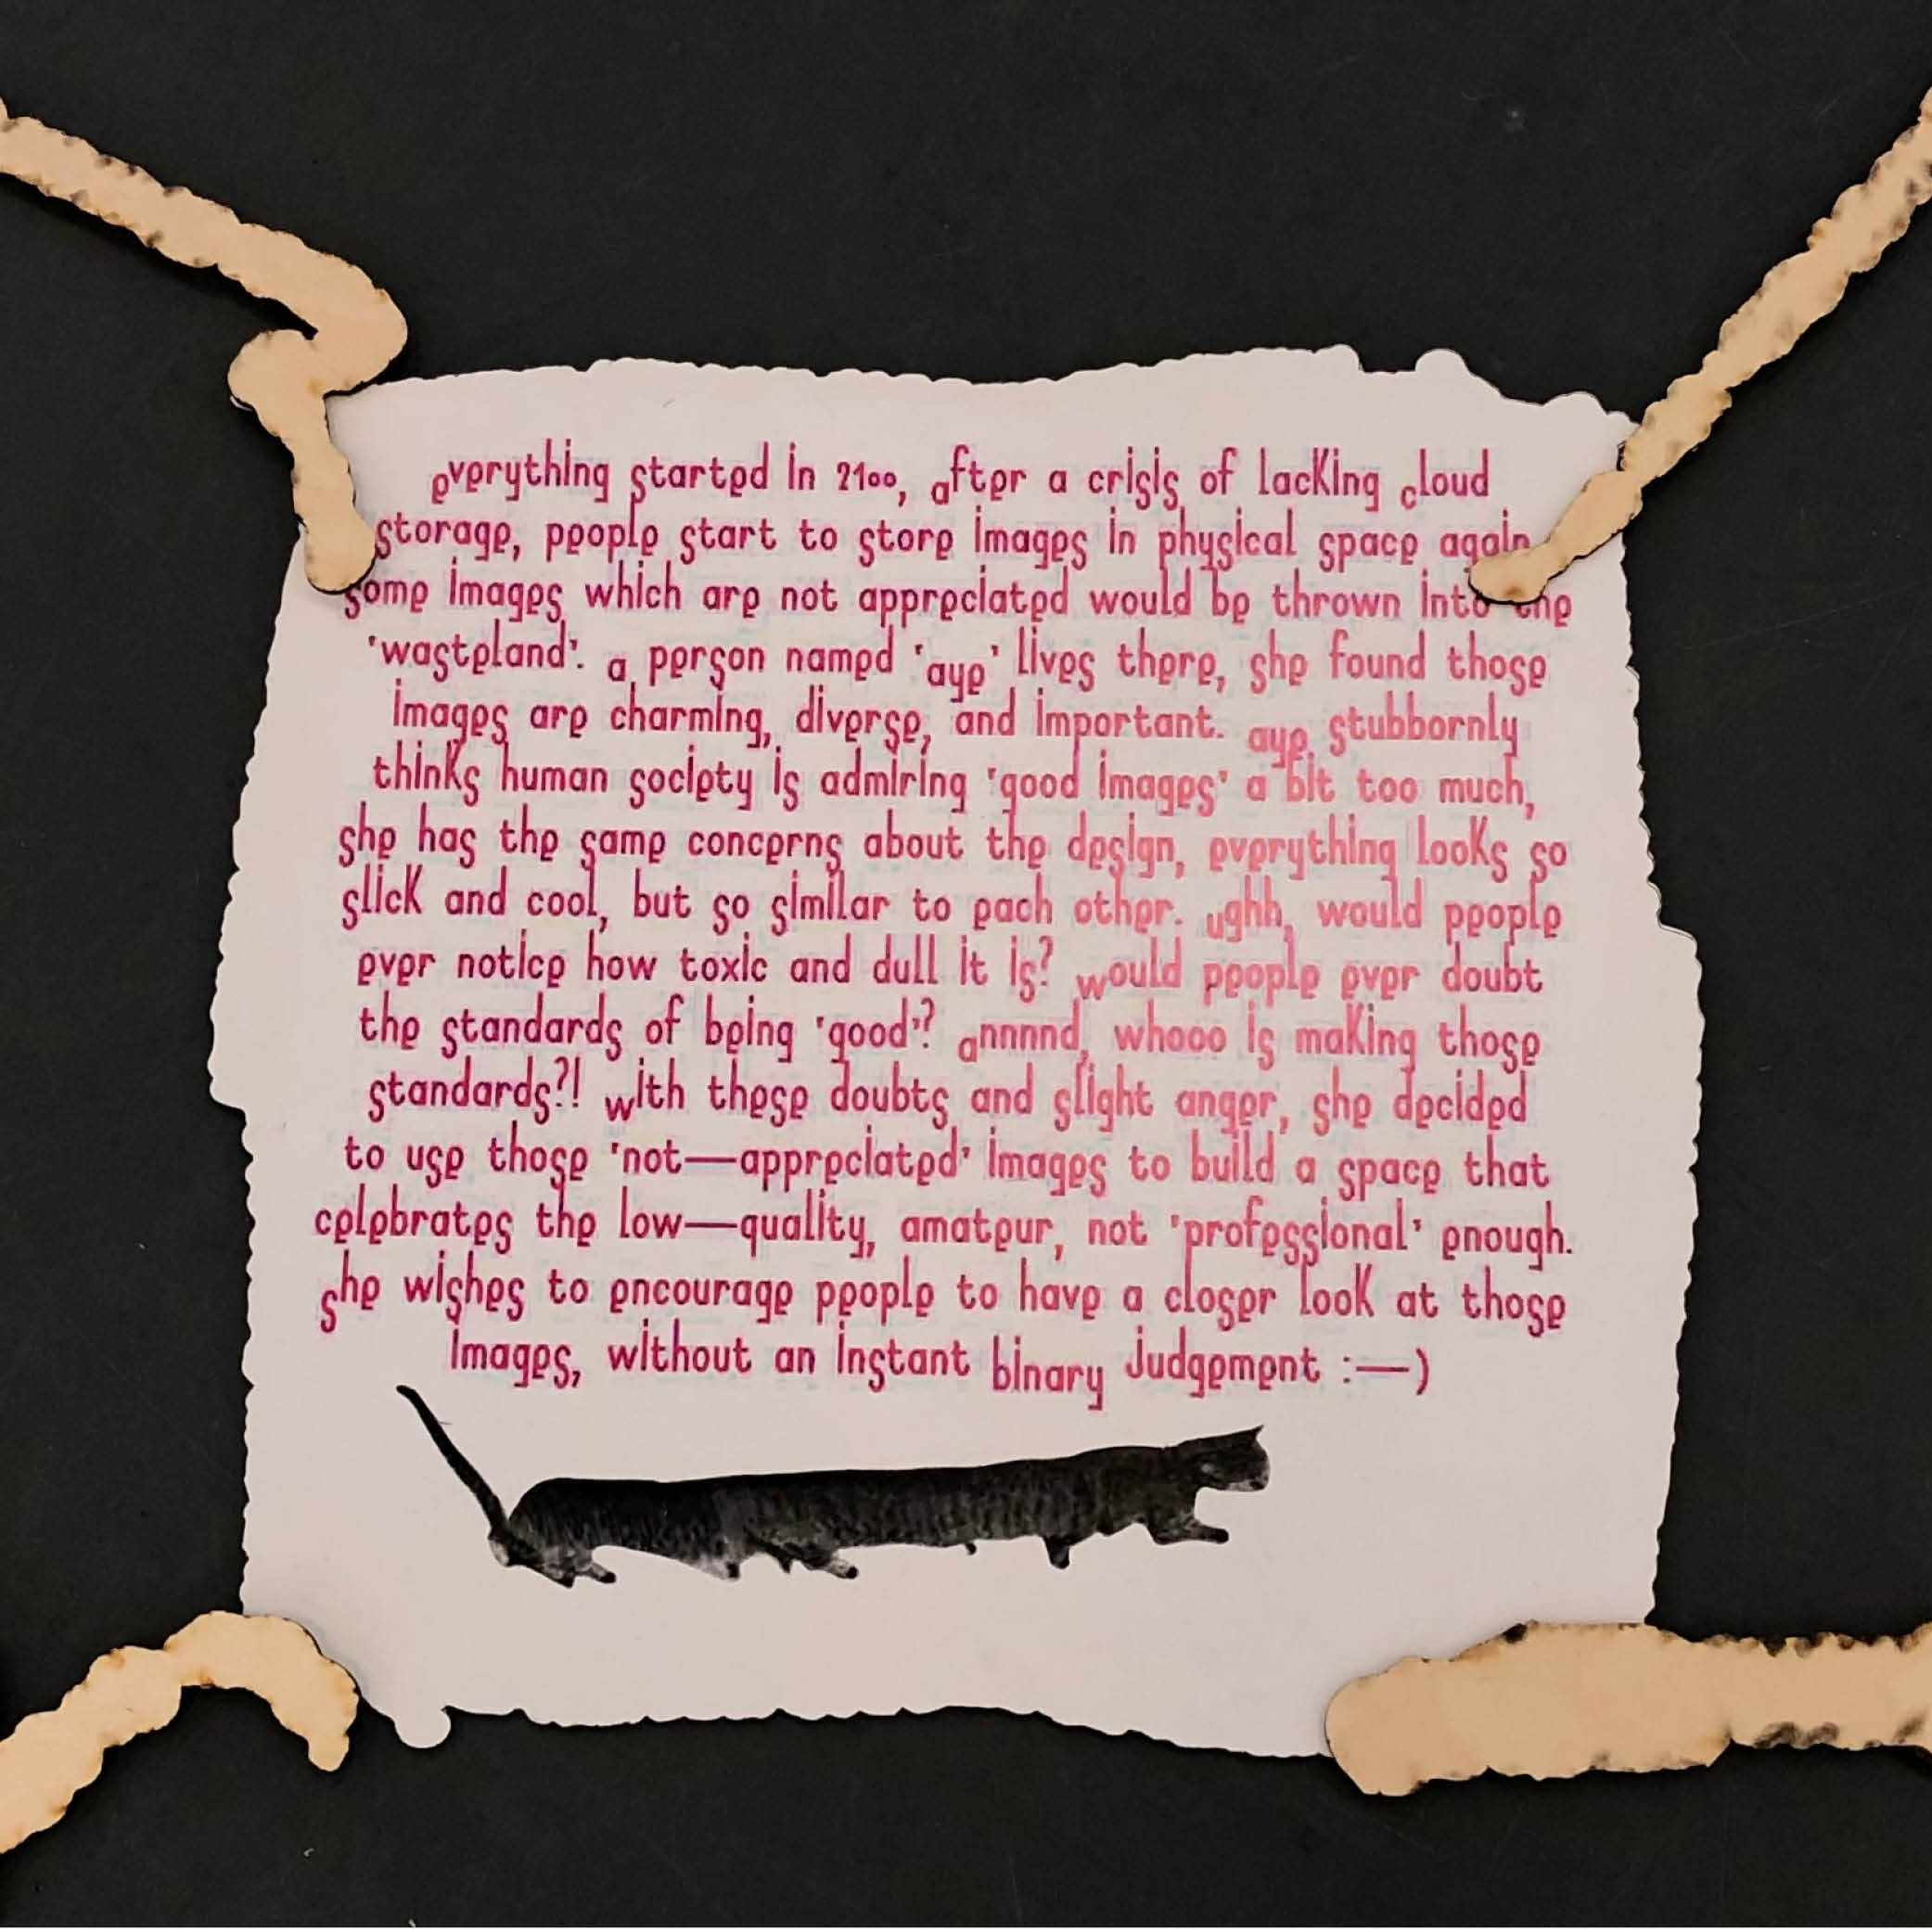 everything started in 2100, after a crisis of lacking cloud
storage, people start to store images in physical space again
some images which are not appreciated would be thrown into the
'wasteland'. a person named 'aye' lives there, she found those
images are charming, diverse, and important. aye stubbornly
thinks human society is admiring 'good images' a bit too much,
she has the same concerns about the design, everything looks so
slick and cool, but so similar to each other. ughh, would people
ever notice how toxic and dull it is? would people ever doubt
the standards of being 'good'? annnnd, whooo is making those
standards?! with these doubts and slight anger, she decided
to use those 'not—appreciated' images to build a space that
celebrates the low—quality, amateur, not 'professional' enough.
she wishes to encourage people to have a closer look at those
images, without an instant binary judgement :—)